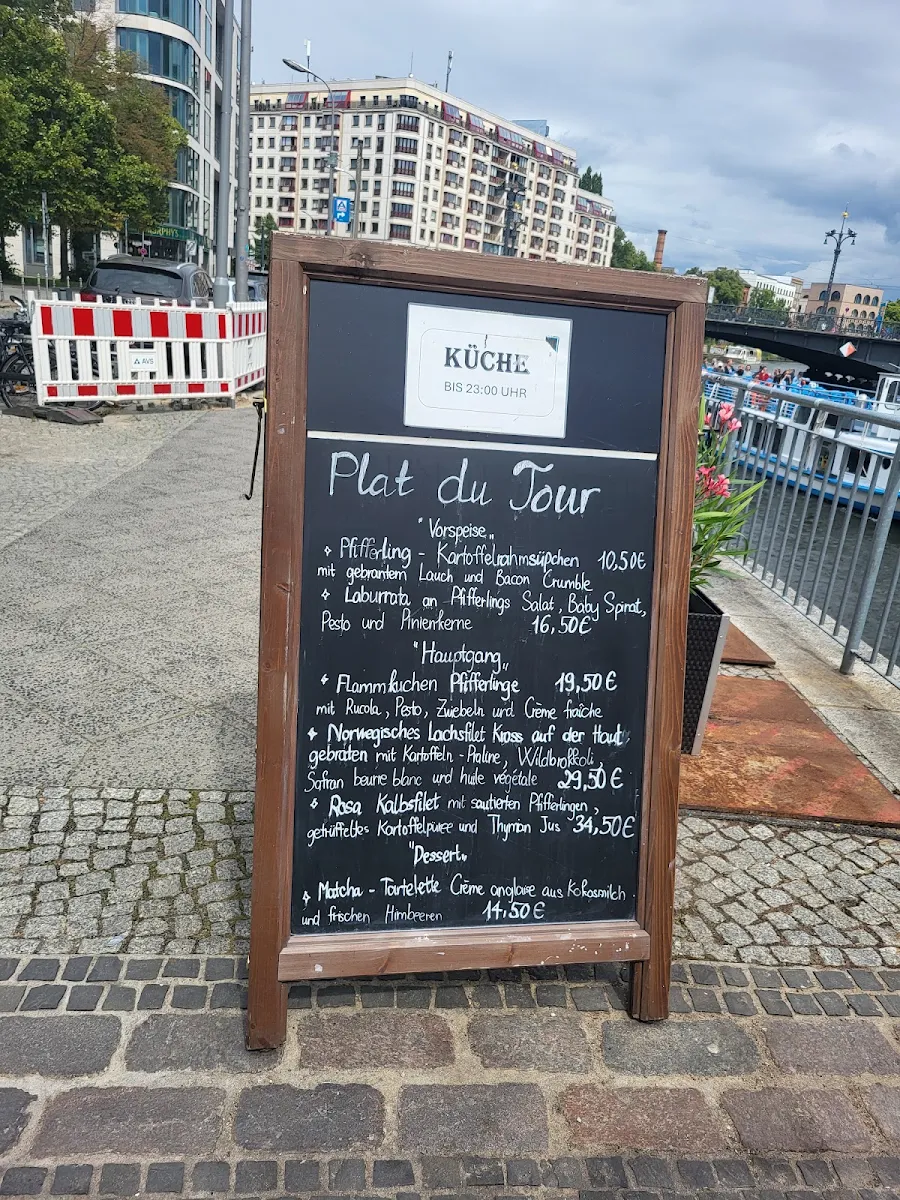 MURPHY'S
AVS
KÜCHE
BIS 23:00 UHR
Plat du Jour
"Vorspeise"
Pfifferling - Kartoffelrahmsüpchen 10,50€
mit gebrantem Lauch und Bacon Crumble
Laburrata an Pfifferlings Salat, Baby Spinat,
Pesto und Pinienkerne 16,50€
"Hauptgang"
Flammkuchen Pfifferlinge 19,50€
mit Rucola, Pesto, Zwiebeln und Crème fraîche
Norwegisches Lachsfilet Kross auf der Haut
gebraten mit Kartoffeln - Praline, Wildbrokkoli,
Safran beurre blanc und huile végétale 29,50€
Rosa Kalbsfilet mit sautierten Pfifferlingen,
getrüffeltes Kartoffelpüree und Thymian Jus 34,50€
"Dessert"
Matcha - Tartelette Crème anglaise aus Kokosmilch
und frischen Himbeeren 14,50€